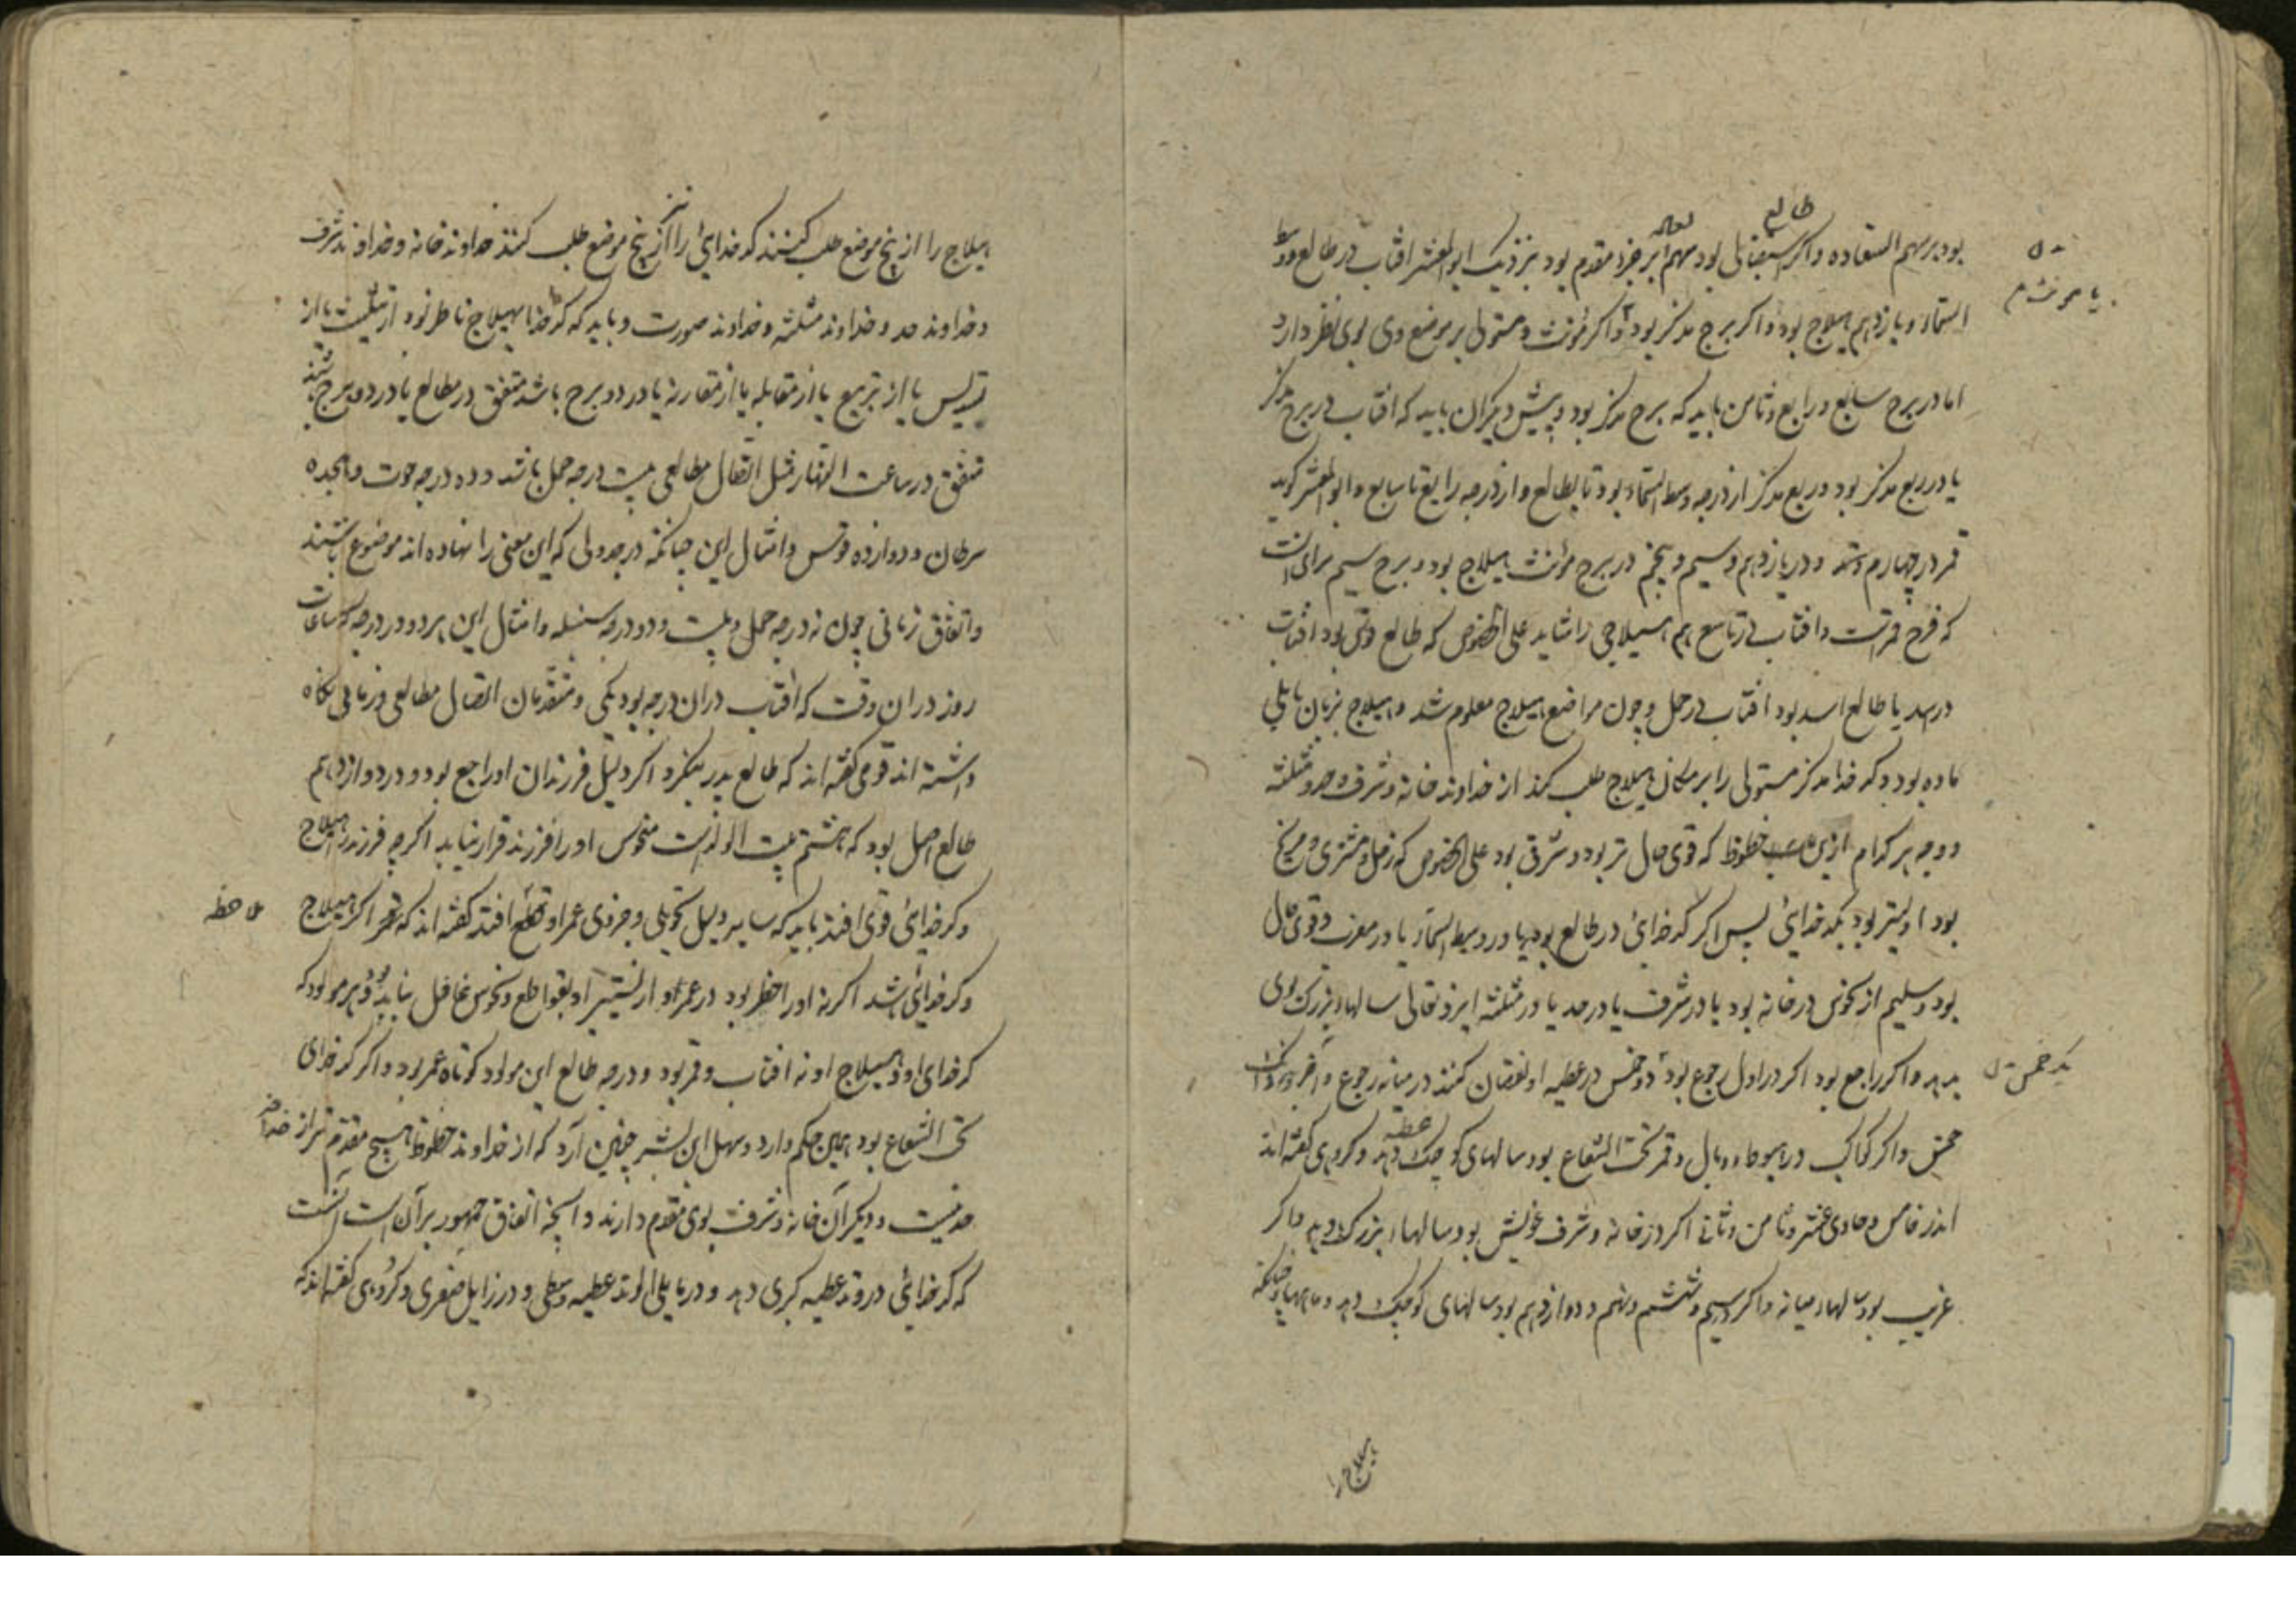 بود بر سهم السعاده و اگر استقبالی بود سهم بر جزو مقدم بود بنزدیک ابو المعشر افتاب در طالع و وسط
طالع
السماء و یازدهم هیلاج بود و اگر برج مذکر بود و اگر مؤنث و مستولی بر موضع وی بوی نظر دارد
یا مونث م
اما در برج سابع و رابع و ثامن باید که برج مذکر بود و پیش دیگران باید که افتاب در برج مذکر
یا در ربع مذکر بود و ربع مذکر از درجه وسط السماء بود تا بطالع و از درجه رابع تا سابع و ابو المعشر گوید
قمر در چهارم و در یازدهم و سیم و پنجم در برج مؤنث هیلاج بود و برج سیم برای انست
که فرح قمرست و افتاب در تاسع هم هیلاجی را شاید علی الخصوص که طالع قوس بود افتاب
در اسد یا طالع اسد بود افتاب در حمل و چون مواضع هیلاج معلوم شد و هیلاج بزبان بابلی
ماده بود و کدخدا مذکر مستولی را بر مکان هیلاج طلب کنند از خداوند خانه و شرف و حد و مثلثه
و وجه هر کدام ازین خطوط که قوی حال تر بود و شرقی بود علی الخصوص که زحل و مشتری و مریخ
بود اولیتر بود بکدخدایی پس اگر کدخدای در طالع بود یا در وسط السماء یا در مغرب و قوی حال
بود و سلیم از نحوس در خانه بود یا در شرف یا در حد یا در مثلثه ایزد تعالی سالهاء بزرگ بوی
بدهد و اگر راجع بود اگر در اول رجوع بود دو خمس در عطیه او نقصان کنند در میانه رجوع و آخر
یک خمس
خمس و اگر کواکب در هبوط و وبال و قمر تحت الشعاع بود سالهای کوچک دهد و گروهی گفته اند
عطیه
اندر خامس و حادی عشر و ثامن و ثانی اگر در خانه و شرف خویش بود سالهاء بزرگ دهد و اگر
غریب بود سالهاء میانه و اگر در سیم و ششم و نهم و دوازدهم بود سالهای کوچک دهد و چنانکه
هیلاج را
هیلاج را از پنج موضع طلب کنند کدخدای را از پنج موضع طلب کنند خداوند خانه و خداوند شرف
نیز
و خداوند حد و خداوند مثلثه و خداوند صورت و باید که کدخدا بهیلاج ناظر بود از تثلیث یا از
تسدیس یا از تربیع یا از مقابله یا از مقارنه یا در دو برج باشد متفق در مطالع یا در دو برج باشند
متفق در ساعت النهار مثل اتصال مطالعی بیست درجه حمل باشد و ده درجه حوت و هجده
سرطان و دوازده قوس و امثال این چنانکه در جدولی که این معنی را نهاده اند موضوع باشند
و اتفاق زمانی چون نه درجه حمل و بیست و دو درجه سنبله و امثال این هر دو در درجه که ساعات
روز در ان وقت که افتاب در ان درجه بود یکی و متقدمان اتصال مطالعی و زمانی نگاه
داشته اند قومی گفته اند که طالع پدر بنگرد اگر دلیل فرزندان او راجع بود و در دوازدهم
طالع اصل بود که هشتم بیت الولدست منحوس او را فرزند قرار نیابد اگر چه فرزند را هیلاج
و کدخدای قوی افتد باید که سایر دلیل تحویلی و جزوی عمر او قطع افتد گفته اند که قمر اگر هیلاج
ملاحظه
و کدخدای باشد اگر نه او را خطر بود در عمر او از تسییر او بقواطع و نحوس غافل نباید بود و هر مولود که
کدخدای او و هیلاج او نه افتاب و قمر بود و درجه طالع این مولود کوتاه عمر بود و اگر کدخدای
تحت الشعاع بود همین حکم دارد و سهل ابن بشر چنین آرد که از خداوند خطوط هیچ مقدم تر از خداوند
حد نیست و دیگران خانه و شرف بوی مقدم دارند و آنچه اتفاق جمهور بر آن است آنست
که کدخدایی در وتد عطیه کبری دهد و در مایلی الوتد عطیه وسطی و در زایل صغری و گروهی گفته اند که